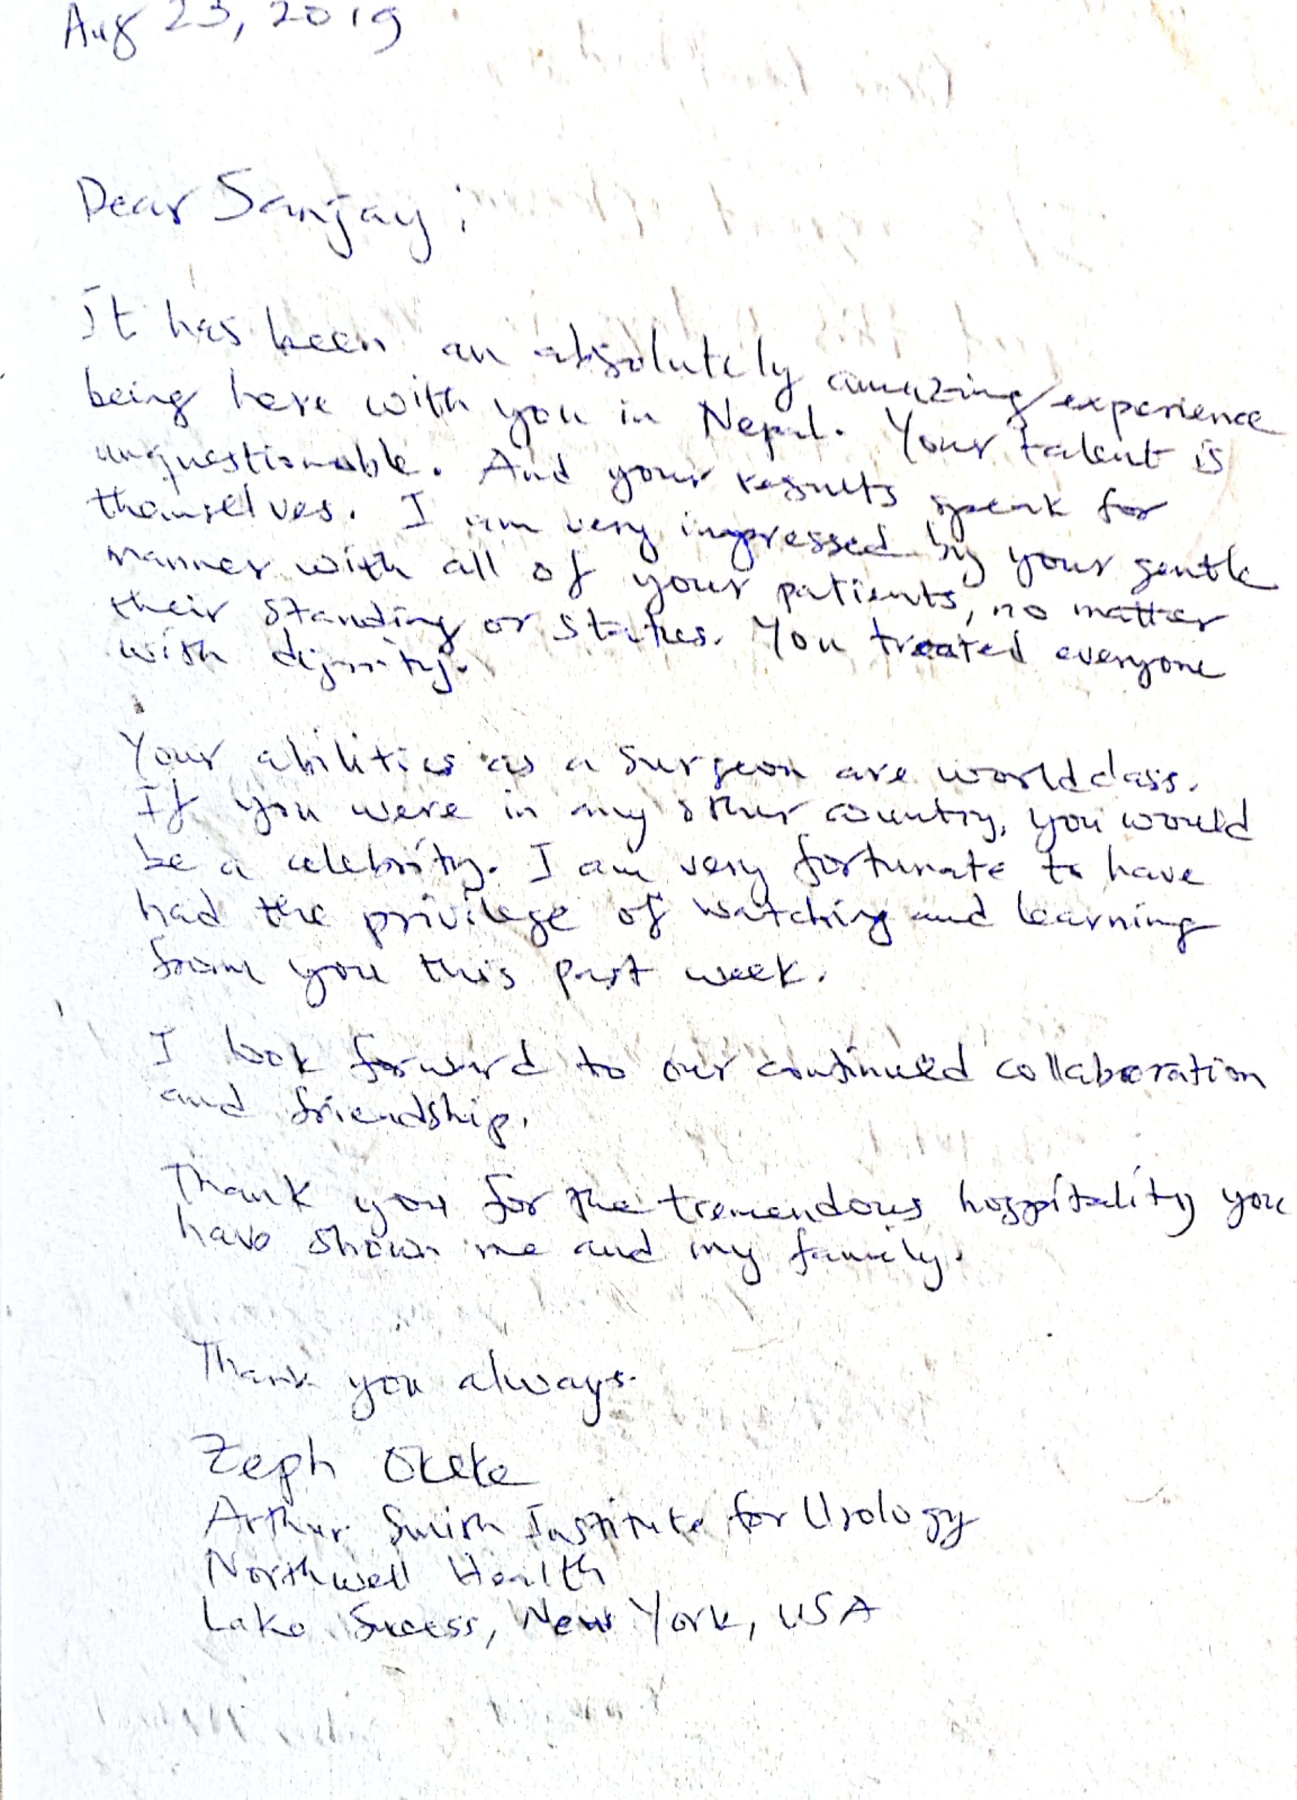 Aug 23, 2019
Dear Sanjay:
It has been an absolutely amazing experience
being here with you in Nepal. Your talent is
unquestionable. And your results speak for
themselves. I am very impressed by your gentle
manner with all of your patients, no matter
their standing or status. You treated everyone
with dignity.
Your abilities as a surgeon are world class.
If you were in any other country, you would
be a celebrity. I am very fortunate to have
had the privilege of watching and learning
from you this past week.
I look forward to our continued collaboration
and friendship.
Thank you for the tremendous hospitality you
have shown me and my family.
Thank you always.
Zeph Okeke
Arthur Smith Institute for Urology
Northwell Health
Lake Success, New York, USA